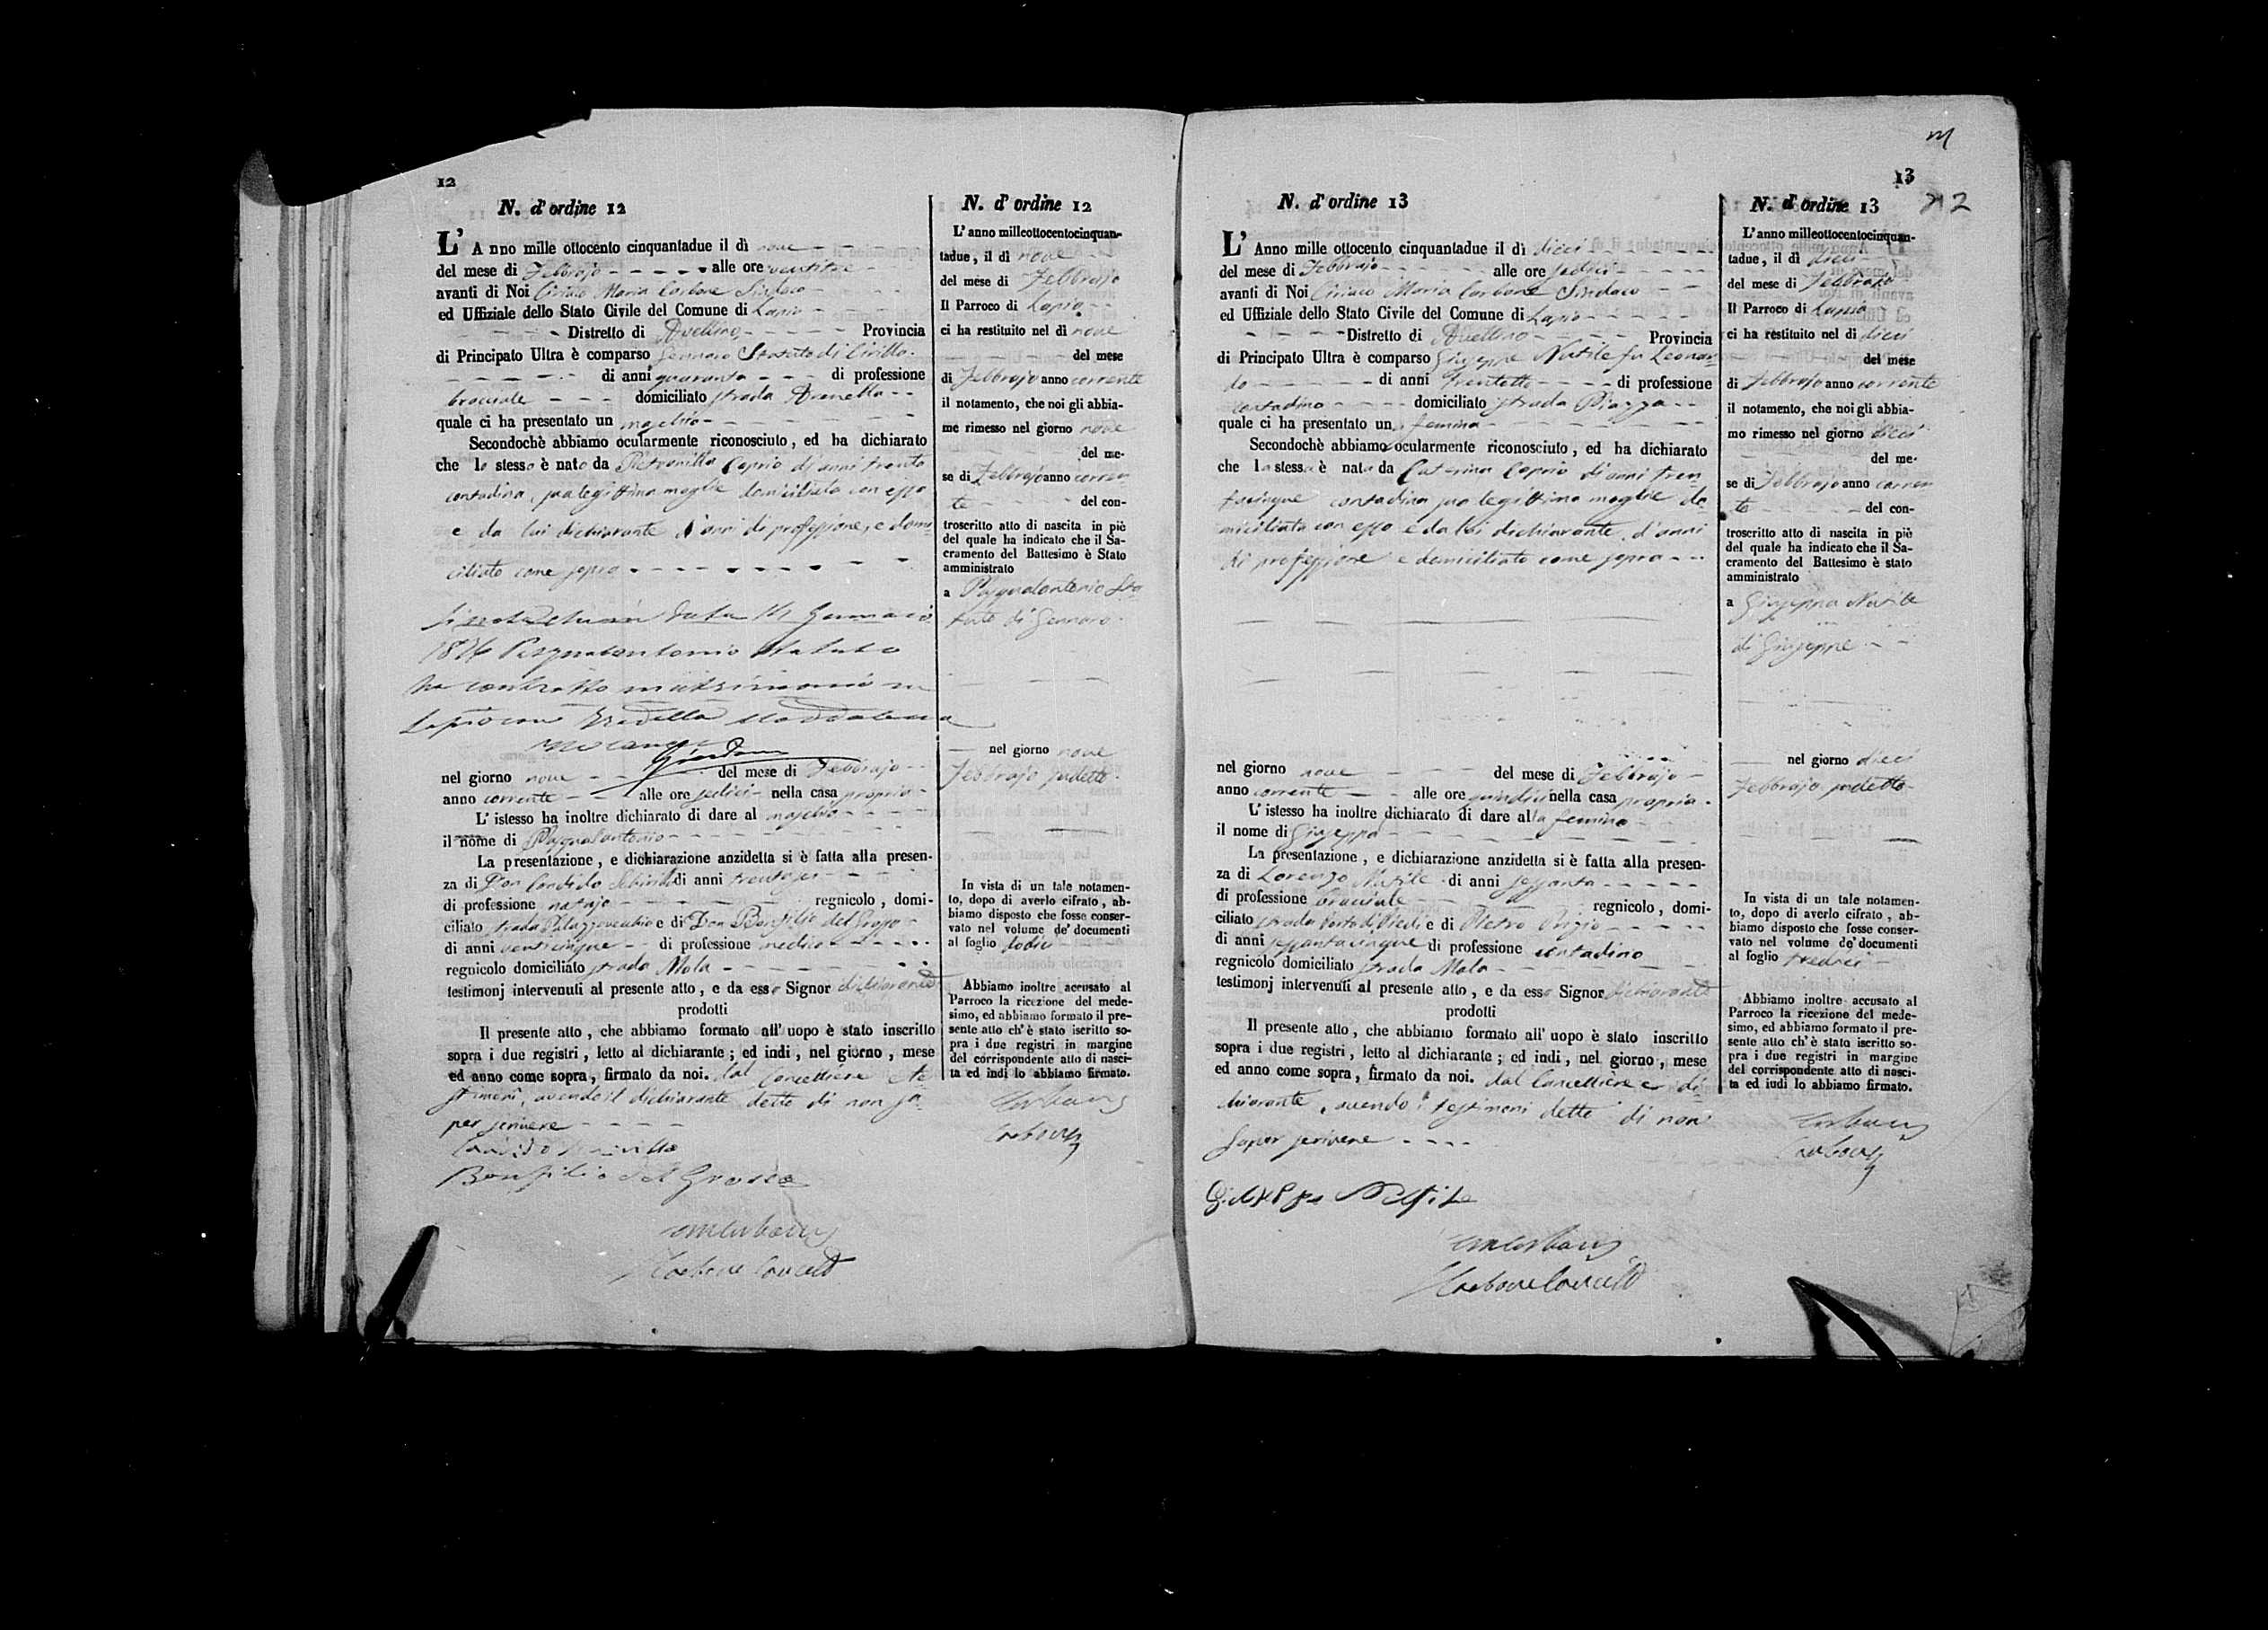 12
N. d'ordine 12
L' Anno mille ottocento cinquantadue il dì nove
del mese di Febbrajo alle ore ventitre
avanti di Noi Ciriaco Maria Carbone Sindaco
ed Uffiziale dello Stato Civile del Comune di Lapio
Distretto di Avellino Provincia
di Principato Ultra è comparso Gennaro Statuto di Cirillo
di anni quaranta di professione
bracciale domiciliato strada Arenella
quale ci ha presentato un maschio
Secondochè abbiamo ocularmente riconosciuto, ed ha dichiarato
che lo stesso è nato da Petronilla Caprio di anni trenta
contadina, sua legittima moglie domiciliata con esso
e da lui dichiarante d'anni di professione, e domi-
ciliato come sopra
1876 Pasqualantonio Statuto
ha contratto matrimonio in
Lapio con
nel giorno nove del mese di Febbrajo
anno corrente alle ore sedici nella casa propria
L' istesso ha inoltre dichiarato di dare al maschio
il nome di Pasqualantonio
La presentazione, e dichiarazione anzidetta si è fatta alla presen-
za di Don Candido di anni trentasei
di professione notajo regnicolo, domi-
ciliato strada Palazzovecchio e di Don Bonfilio del Grosso
di anni venticinque di professione medico
regnicolo domiciliato strada Mola
testimonj intervenuti al presente atto, e da esso Signor dichiarante
prodotti
Il presente atto, che abbiamo formato all' uopo è stato inscritto
sopra i due registri, letto al dichiarante; ed indi, nel giorno, mese
ed anno come sopra, firmato da noi. dal Cancelliere e te-
stimoni, avendo il dichiarante detto di non sa-
per scrivere
Bonfilio del Grosso
Carbone Cancell
N. d' ordine 12
L' anno milleottocentocinquan-
tadue, il dì nove
del mese di Febbrajo
Il Parroco di Lapio
ci ha restituito nel dì nove
del mese
di Febbrajo anno corrente
il notamento, che noi gli abbia-
me rimesso nel giorno nove
del me-
se di Febbrajo anno corren
te del con-
troscritto atto di nascita in piè
del quale ha indicato che il Sa-
cramento del Battesimo è Stato
amministrato
a Pasqualantonio Sta
tuto di Gennaro
nel giorno nove
Febbrajo sudetto
In vista di un tale notamen-
to, dopo di averlo cifrato, ab-
biamo disposto che fosse conser-
vato nel volume de' documenti
al foglio dodici
Abbiamo inoltre accusato al
Parroco la ricezione del mede-
simo, ed abbiamo formato il pre-
sente atto ch' è stato iscritto so-
pra i due registri in margine
del corrispondente atto di nasci-
ta ed indi lo abbiamo firmato.
Carbone
13
N. d' ordine 13
L' Anno mille ottocento cinquantadue il dì dieci
del mese di Febbrajo alle ore sedici
avanti di Noi Ciriaco Maria Carbone Sindaco
ed Uffiziale dello Stato Civile del Comune di Lapio
Distretto di Avellino Provincia
di Principato Ultra è comparso Giuseppe Nutile fu Leonar
do di anni trentotto di professione
contadino domiciliato strada Piazza
quale ci ha presentato una femina
Secondochè abbiamo ocularmente riconosciuto, ed ha dichiarato
che la stessa è nata da Caterina Caprio di anni tren
tacinque contadina sua legittima moglie do
miciliata con esso e da lui dichiarante, d'anni
di professione e domiciliato come sopra
nel giorno nove del mese di Febbrajo
anno corrente alle ore quindici nella casa propria
L' istesso ha inoltre dichiarato di dare alla femina
il nome di Giuseppa
La presentazione, e dichiarazione anzidetta si è fatta alla presen-
za di Lorenzo Nutile di anni sessanta
di professione bracciale regnicolo, domi-
ciliato strada e di Pietro
di anni sessantacinque di professione contadino
regnicolo domiciliato strada Mola
testimonj intervenuti al presente atto, e da esso Signor dichiarante
prodotti
Il presente atto, che abbiamo formato all' uopo è stato inscritto
sopra i due registri, letto al dichiarante; ed indi, nel giorno, mese
ed anno come sopra, firmato da noi. dal Cancelliere e di-
chiarante, avendo i testimoni detto di non
saper scrivere
Carbone Cancell
N. d' ordine 13
L' anno milleottocentocinquan-
tadue, il dì dieci
del mese di Febbrajo
Il Parroco di Lapio
ci ha restituito nel dì dieci
del mese
di Febbrajo anno corrente
il notamento, che noi gli abbia-
mo rimesso nel giorno dieci
del me-
se di Febbrajo anno corren
te del con-
troscritto atto di nascita in piè
del quale ha indicato che il Sa-
cramento del Battesimo è stato
amministrato
a Giuseppa Nutile
di Giuseppe
nel giorno dieci
Febbrajo sudetto
In vista di un tale notamen-
to, dopo di averlo cifrato, ab-
biamo disposto che fosse conser-
vato nel volume de' documenti
al foglio tredici
Abbiamo inoltre accusato al
Parroco la ricezione del mede-
simo, ed abbiamo formato il pre-
sente atto ch' è stato iscritto so-
pra i due registri in margine
del corrispondente atto di nasci-
ta ed iudi lo abbiamo firmato.
Carbone